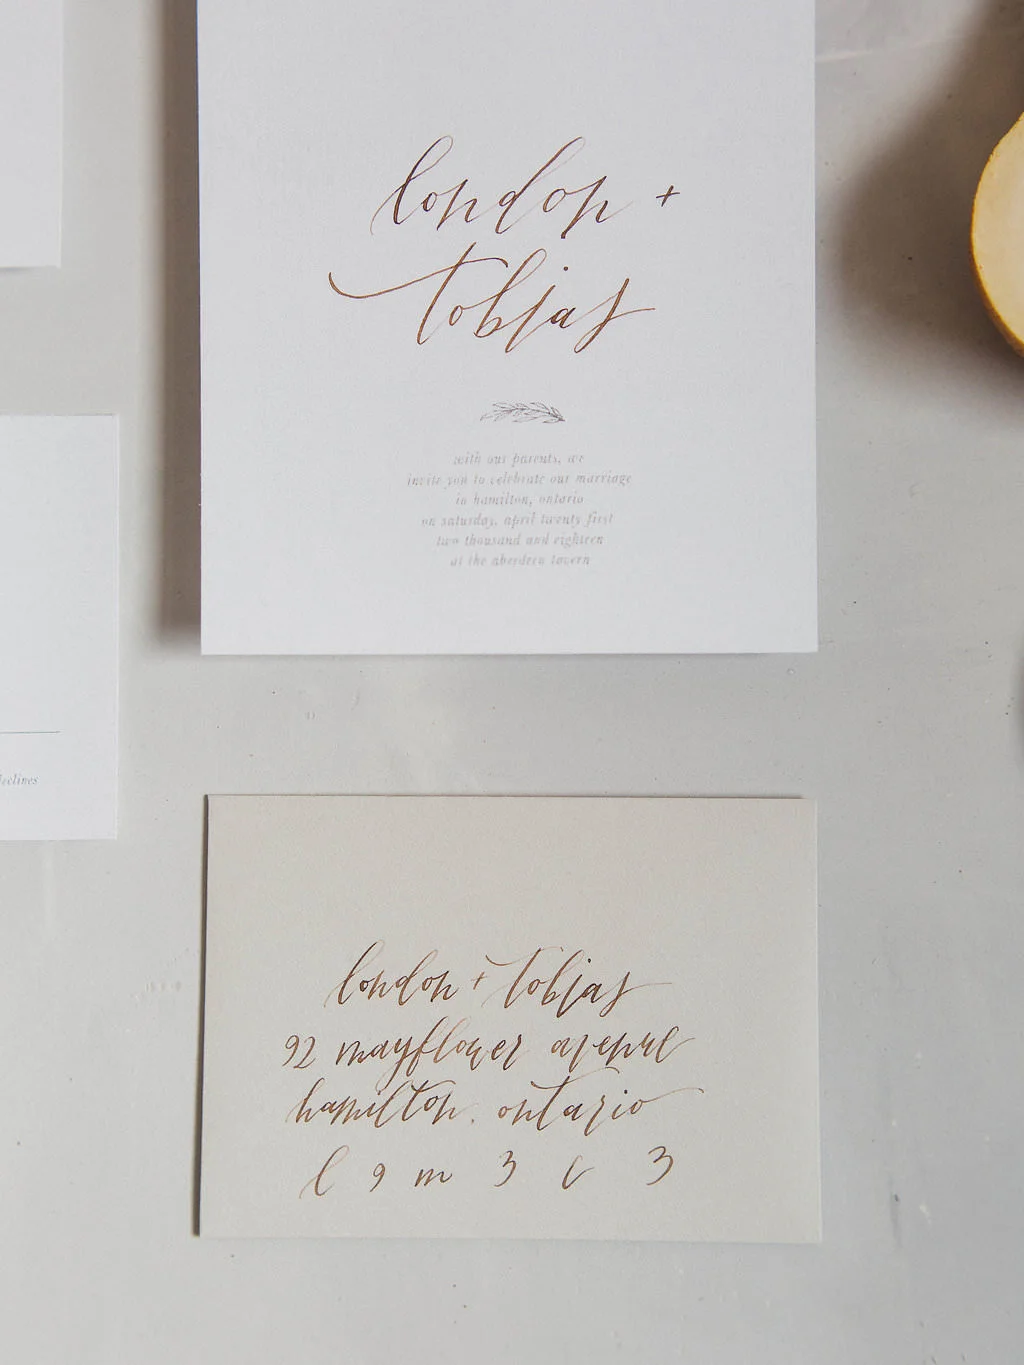 london +
tobias
with our parents, we
invite you to celebrate our marriage
in hamilton, ontario
on saturday, april twenty first
two thousand and eighteen
at the aberdeen tavern
declines
london + tobias
92 mayflower avenue
hamilton, ontario
l 9 m 3 c 3